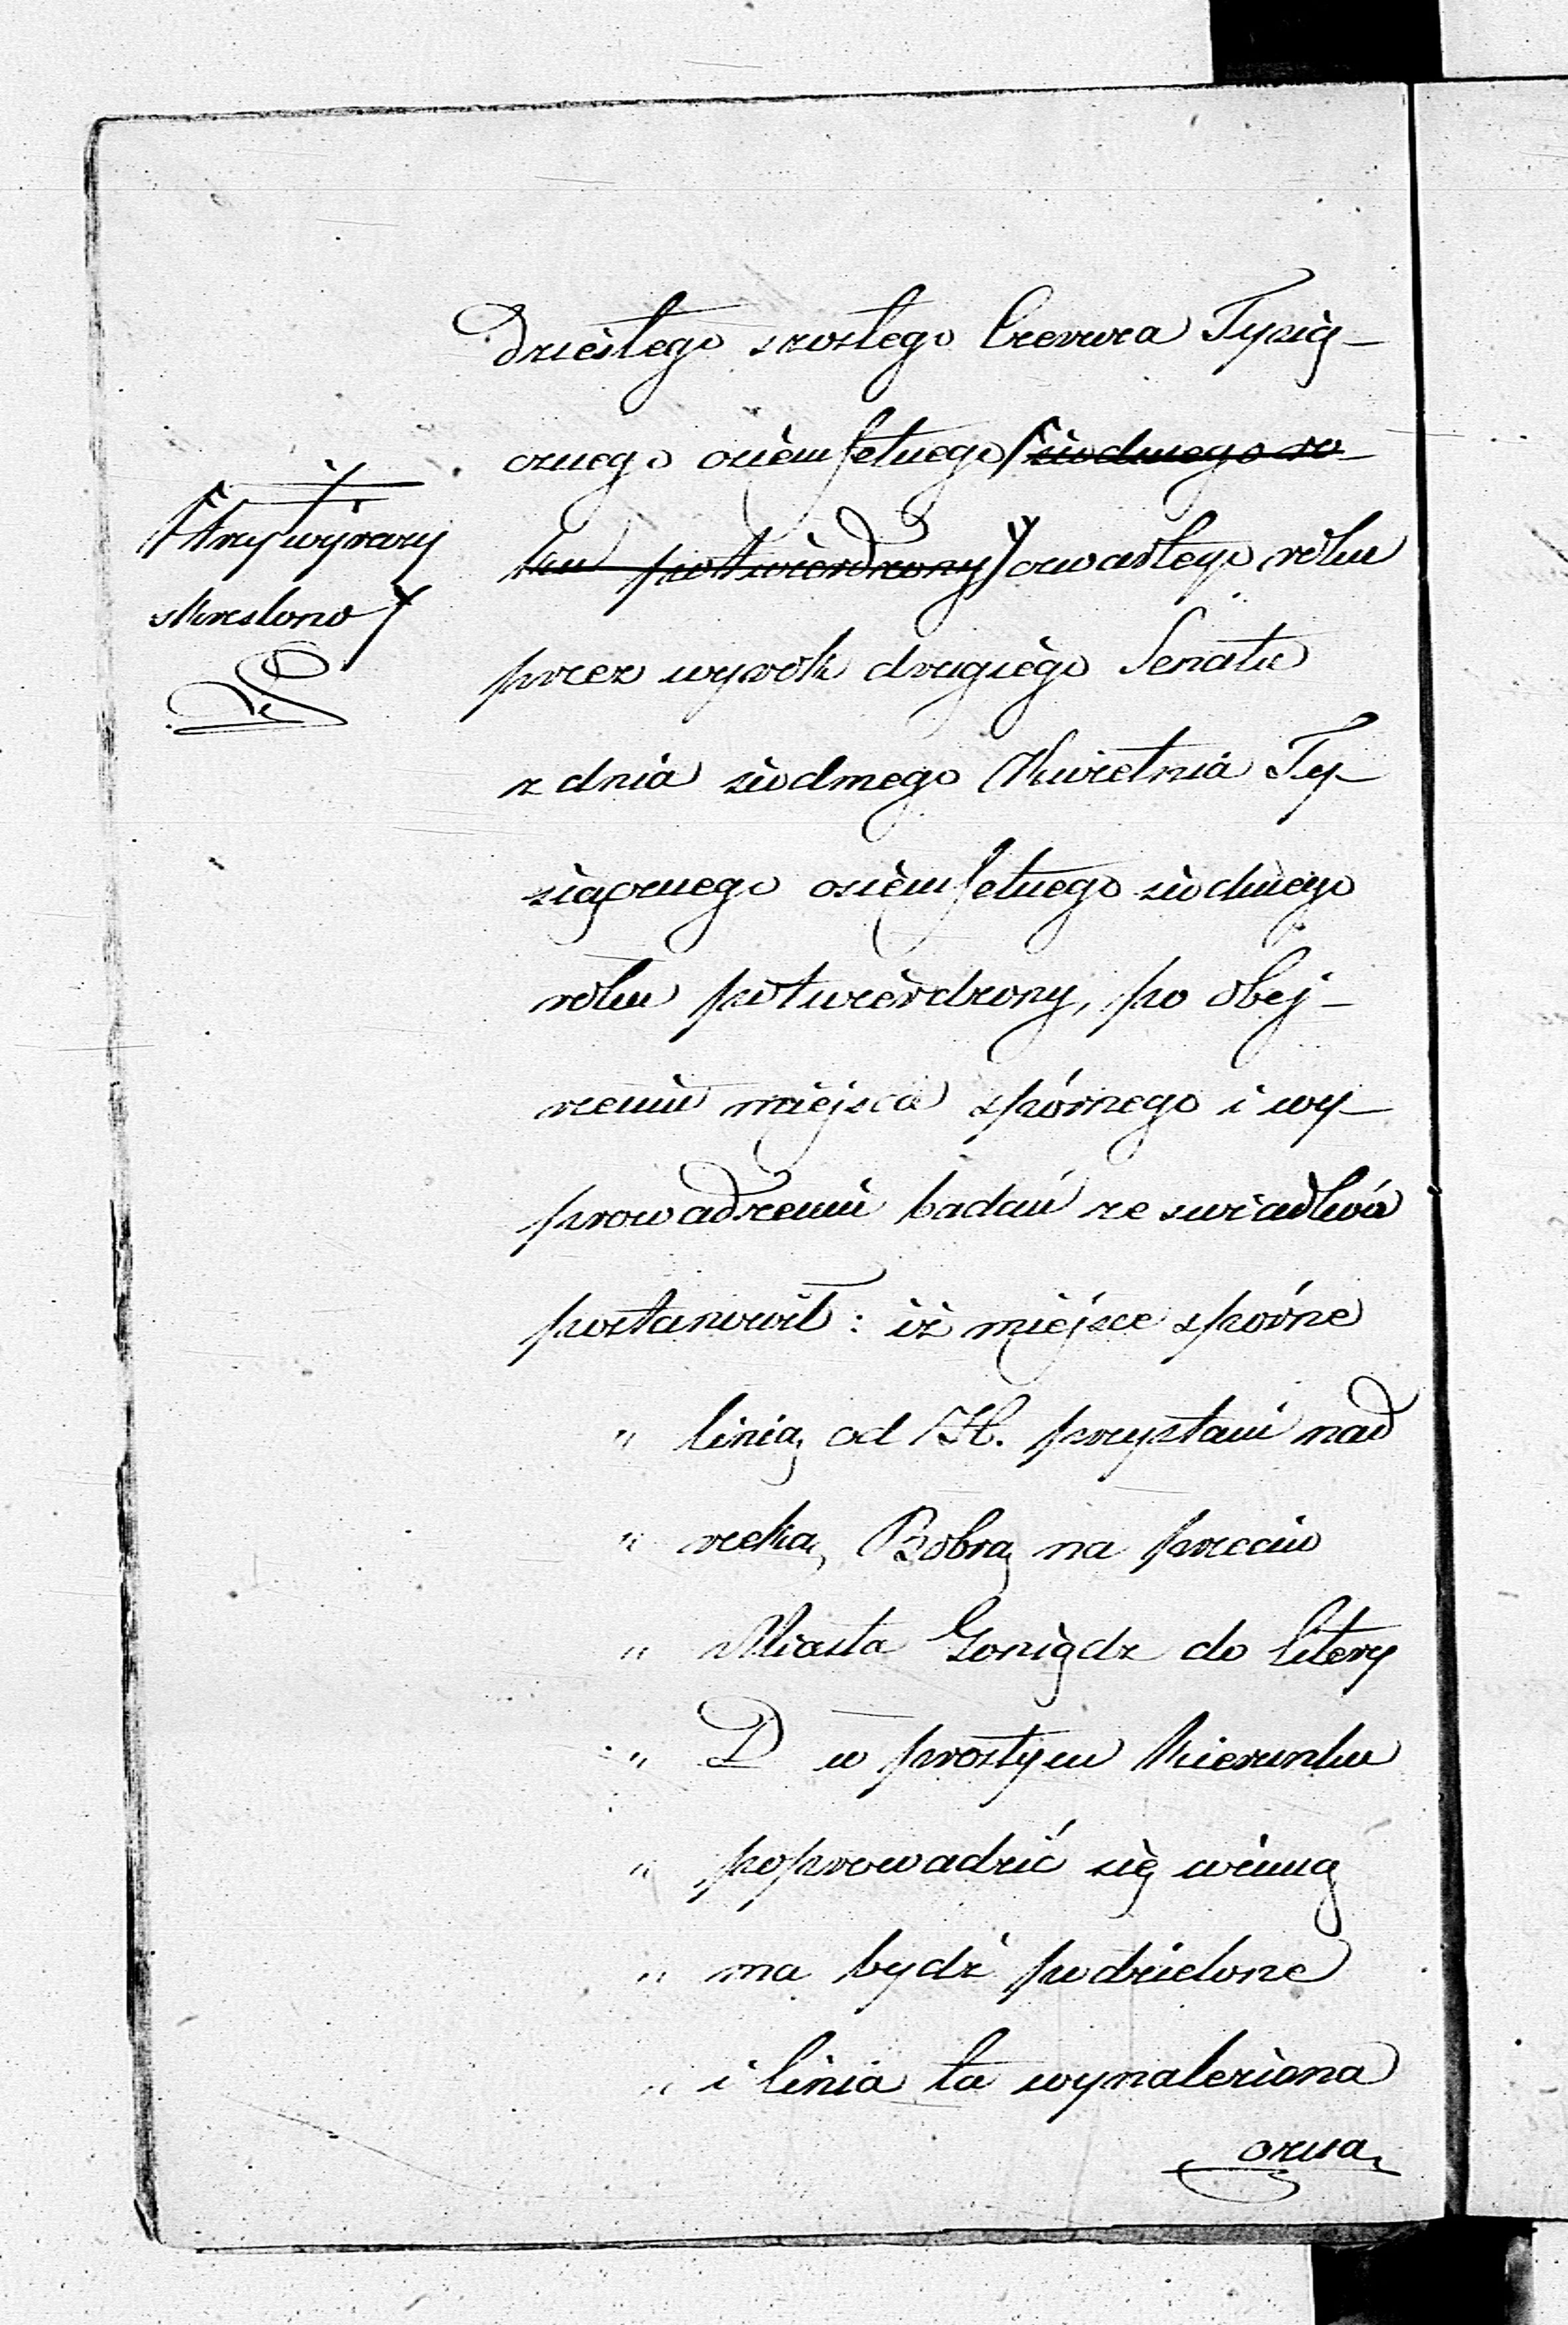 Dziestego szostego Czerwca Tysią-
cznego ośiemsetnego siodmego ro-
ku potwierdzony czwartego roku
Trzy wyrazy
skreslono
przez wyrok drugiego Senatu
z dnia siodmego Kwietnia Ty-
siącznego osiemsetnego siodmego
roku potwierdzony, po obej-
rzeniu miejsca spórnego i wy-
prowadzeniu badań ze swiadków
postanowił: iż miejsce spórne
" linią od H. przystani nad
" rzeką Bobrą na przeciw
" Miasta Goniądz do litery
" D w prostym kierunku
" poprowadzić się winną
" ma bydź podzielone
" i linia ta wynaleziona